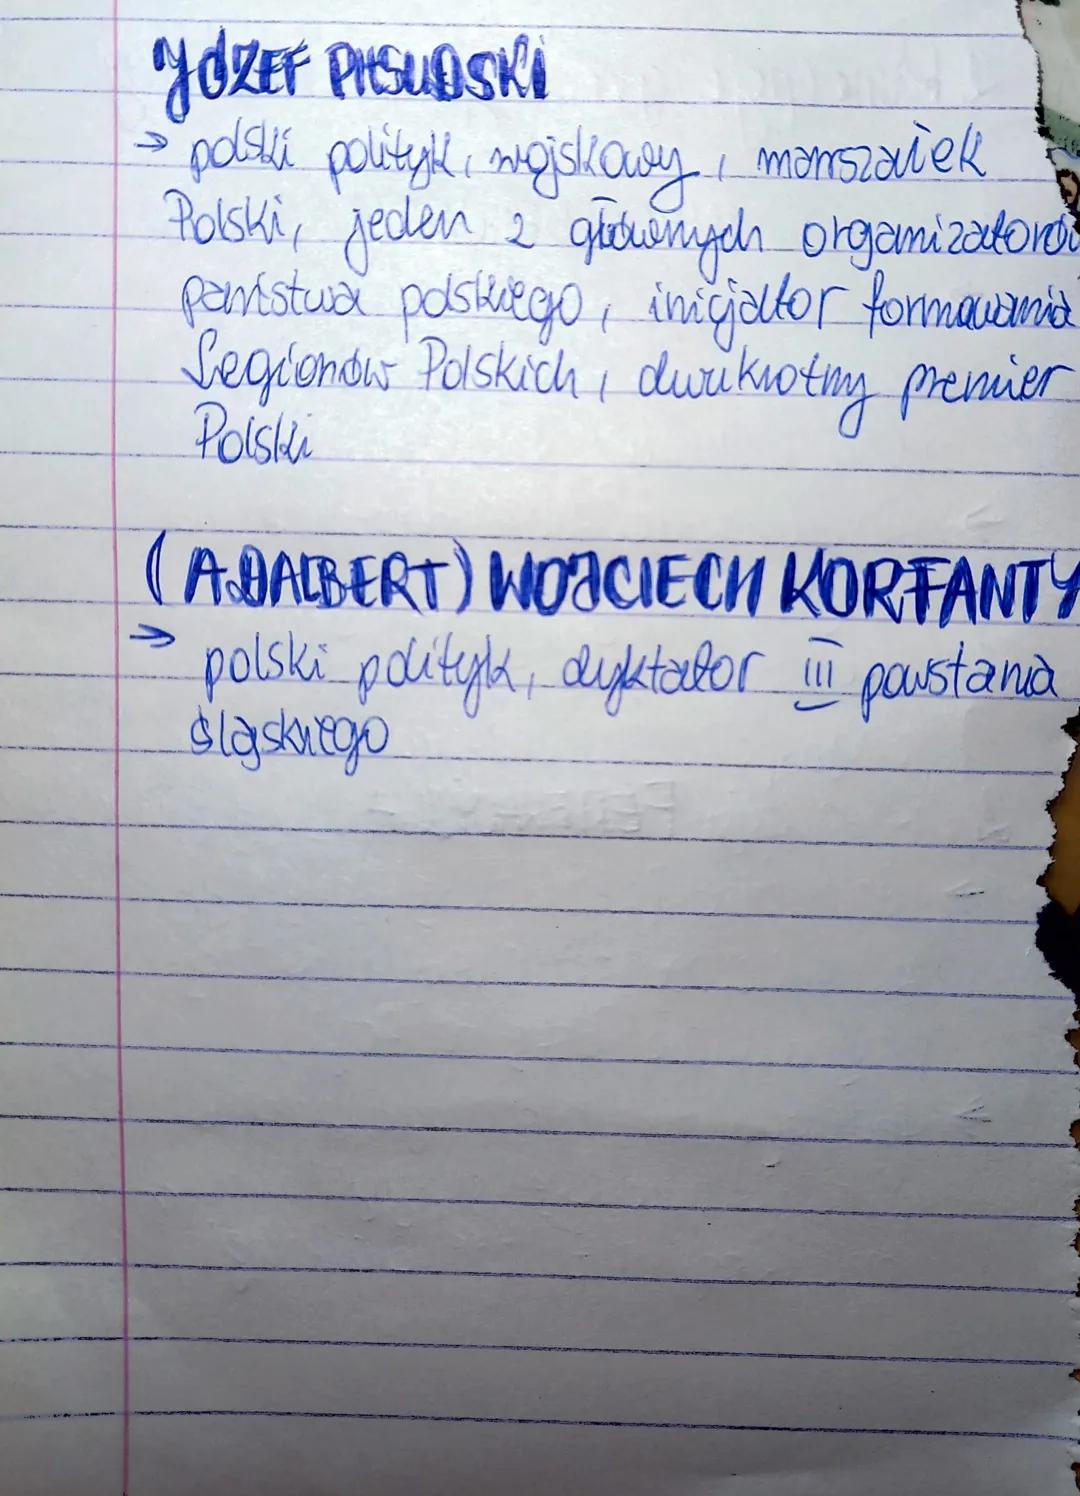 JÓZEF PIŁSUDSKI
→ polski polityk, wojskowy, marszałek
Polski, jeden z głównych organizatorów
państwa polskiego, inicjator formowania
Legionów Polskich, dwukrotny premier
Polski
(ADALBERT) WOJCIECH KORFANTY
→ polski polityk, dyktator III powstania
śląskiego